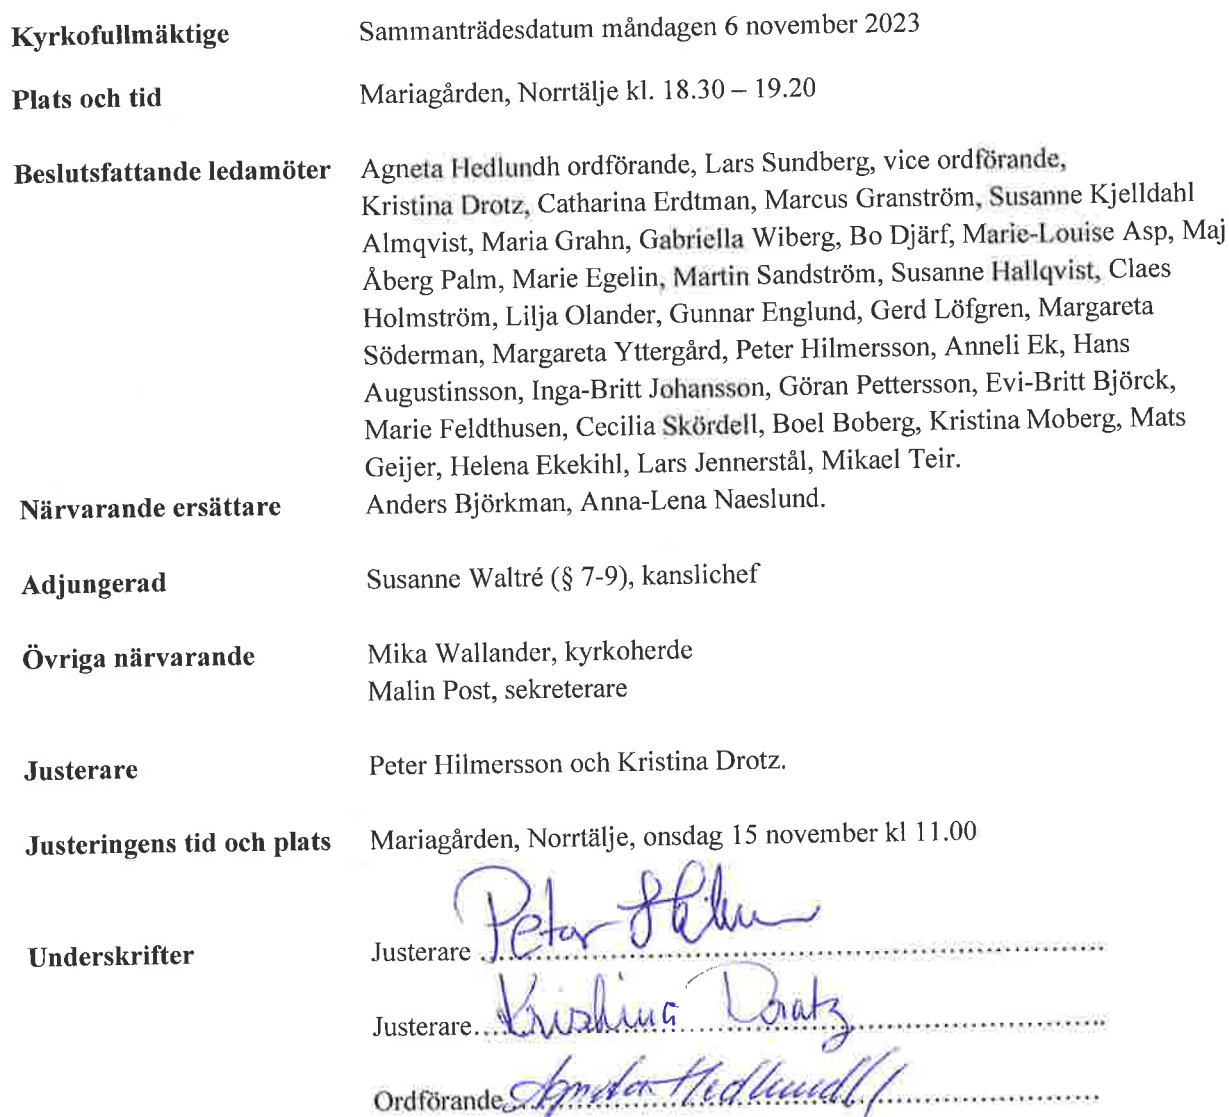 Kyrkofullmäktige Sammanträdesdatum måndagen 6 november 2023
Plats och tid Mariagården, Norrtälje kl. 18.30 – 19.20
Beslutsfattande ledamöter Agneta Hedlundh ordförande, Lars Sundberg, vice ordförande,
Kristina Drotz, Catharina Erdtman, Marcus Granström, Susanne Kjelldahl
Almqvist, Maria Grahn, Gabriella Wiberg, Bo Djärf, Marie-Louise Asp, Maj
Åberg Palm, Marie Egelin, Martin Sandström, Susanne Hallqvist, Claes
Holmström, Lilja Olander, Gunnar Englund, Gerd Löfgren, Margareta
Söderman, Margareta Yttergård, Peter Hilmersson, Anneli Ek, Hans
Augustinsson, Inga-Britt Johansson, Göran Pettersson, Evi-Britt Björck,
Marie Feldthusen, Cecilia Skördell, Boel Boberg, Kristina Moberg, Mats
Geijer, Helena Ekekihl, Lars Jennerstål, Mikael Teir.
Närvarande ersättare Anders Björkman, Anna-Lena Naeslund.
Adjungerad Susanne Waltré (§ 7-9), kanslichef
Övriga närvarande Mika Wallander, kyrkoherde
Malin Post, sekreterare
Justerare Peter Hilmersson och Kristina Drotz.
Justeringens tid och plats Mariagården, Norrtälje, onsdag 15 november kl 11.00
Underskrifter Justerare Peter
Justerare Kristina
Ordförande Agneta Hedlundh